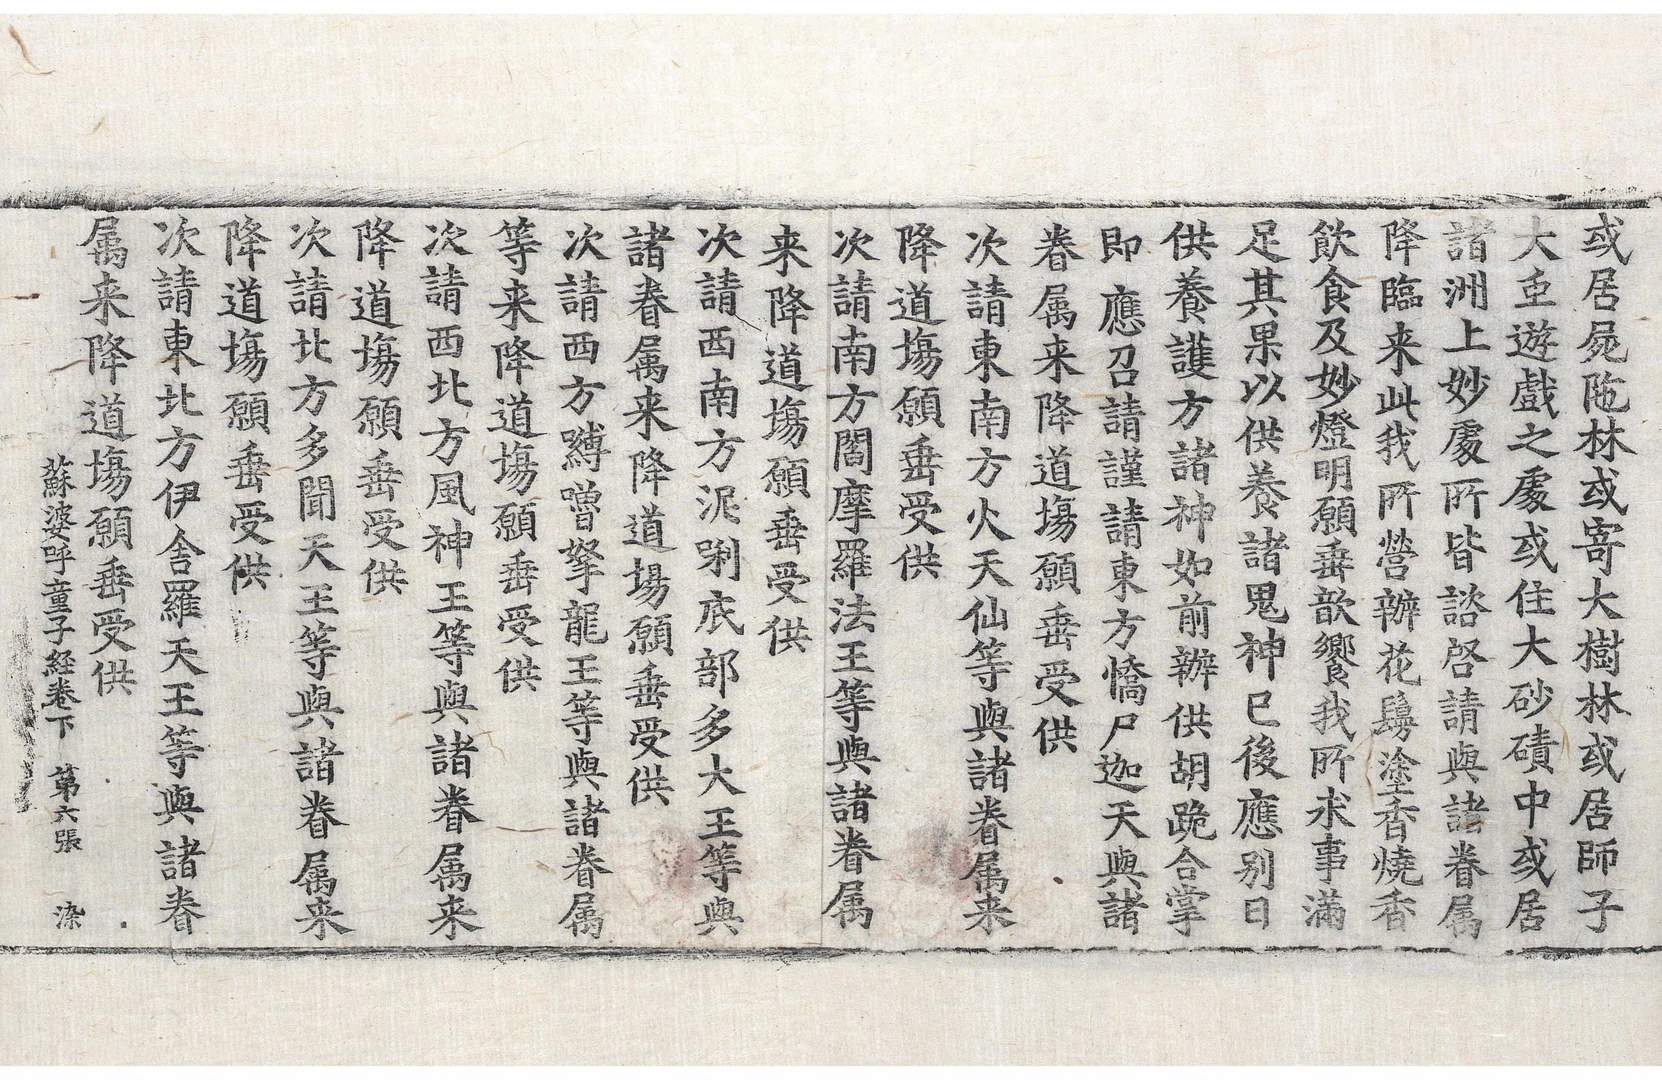 或居屍陁林或寄大樹林或居師子
大虫遊戲之處或住大砂磧中或居
諸洲上妙處所皆諮啓請與諸眷属
降臨来此我所營辦花鬘塗香燒香
飲食及妙燈明願垂歆饗我所求事滿
足其果以供養諸鬼神已後應別日
供養護方諸神如前辦供胡跪合掌
即應召請謹請東方憍尸迦天與諸
眷属来降道塲願垂受供
次請東南方火天仙等與諸眷属来
降道塲願垂受供
次請南方閻摩羅法王等與諸眷属
来降道塲願垂受供
次請西南方泥唎底部多大王等與
諸眷属来降道場願垂受供
次請西方嚩嚕拏龍王等與諸眷属
等来降道塲願垂受供
次請西北方風神王等與諸眷属来
降道塲願垂受供
次請北方多聞天王等與諸眷属来
降道塲願垂受供
次請東北方伊舍羅天王等與諸眷
属来降道塲願垂受供
蘇婆呼童子経卷下 第六張 染